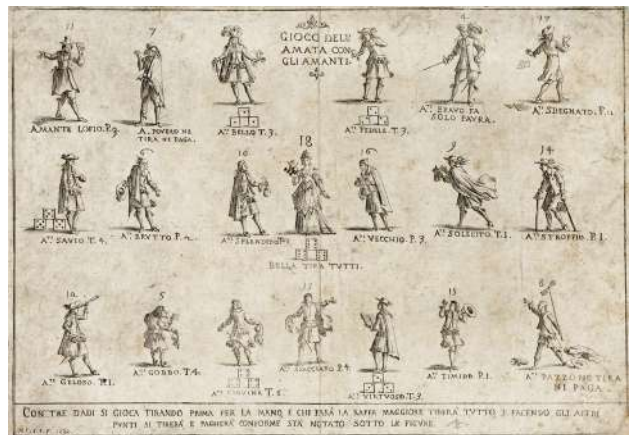 GIOCO DELL'
AMATA CON
GLI AMANTI.
11 7 4 17
AMANTE LOSIO. P. 3.
A. POVERO NE
TIRA NE PAGA.
A.te BELLO T. 3.
A.te FEDELE T. 3.
A.te BRAVO FA
SOLO PAURA.
A.te SDEGNATO. P. 2.
6 10 18 16 9 14
A.te SAVIO T. 4.
A.te BRUTTO P. 2.
A.te SPLENDIDO P.
BELLA TIRA TUTTI.
A.te VECCHIO P. 3.
A.te SOLECITO. T. 1.
A.te STROPPIO P. 1.
5 13 8
A.te GELOSO. P. 1.
A.te GOBBO. T. 4.
A.te T. 5.
A.te P. 4.
A.te VIRTUOSO T. 3.
A.te TIMIDO P. 1.
A.te PAZZO NE TIRA
NE PAGA.
CON TRE DADI SI GIOCA TIRANDO PRIMA PER LA MANO, E CHI FARÀ LA RAFFA MAGGIORE TIRERÀ TUTTO E FACENDO GLI ALTRI
PUNTI SI TIRERÀ E PAGHERÀ CONFORME STÀ NOTATO SOTTO LE FIGURE.